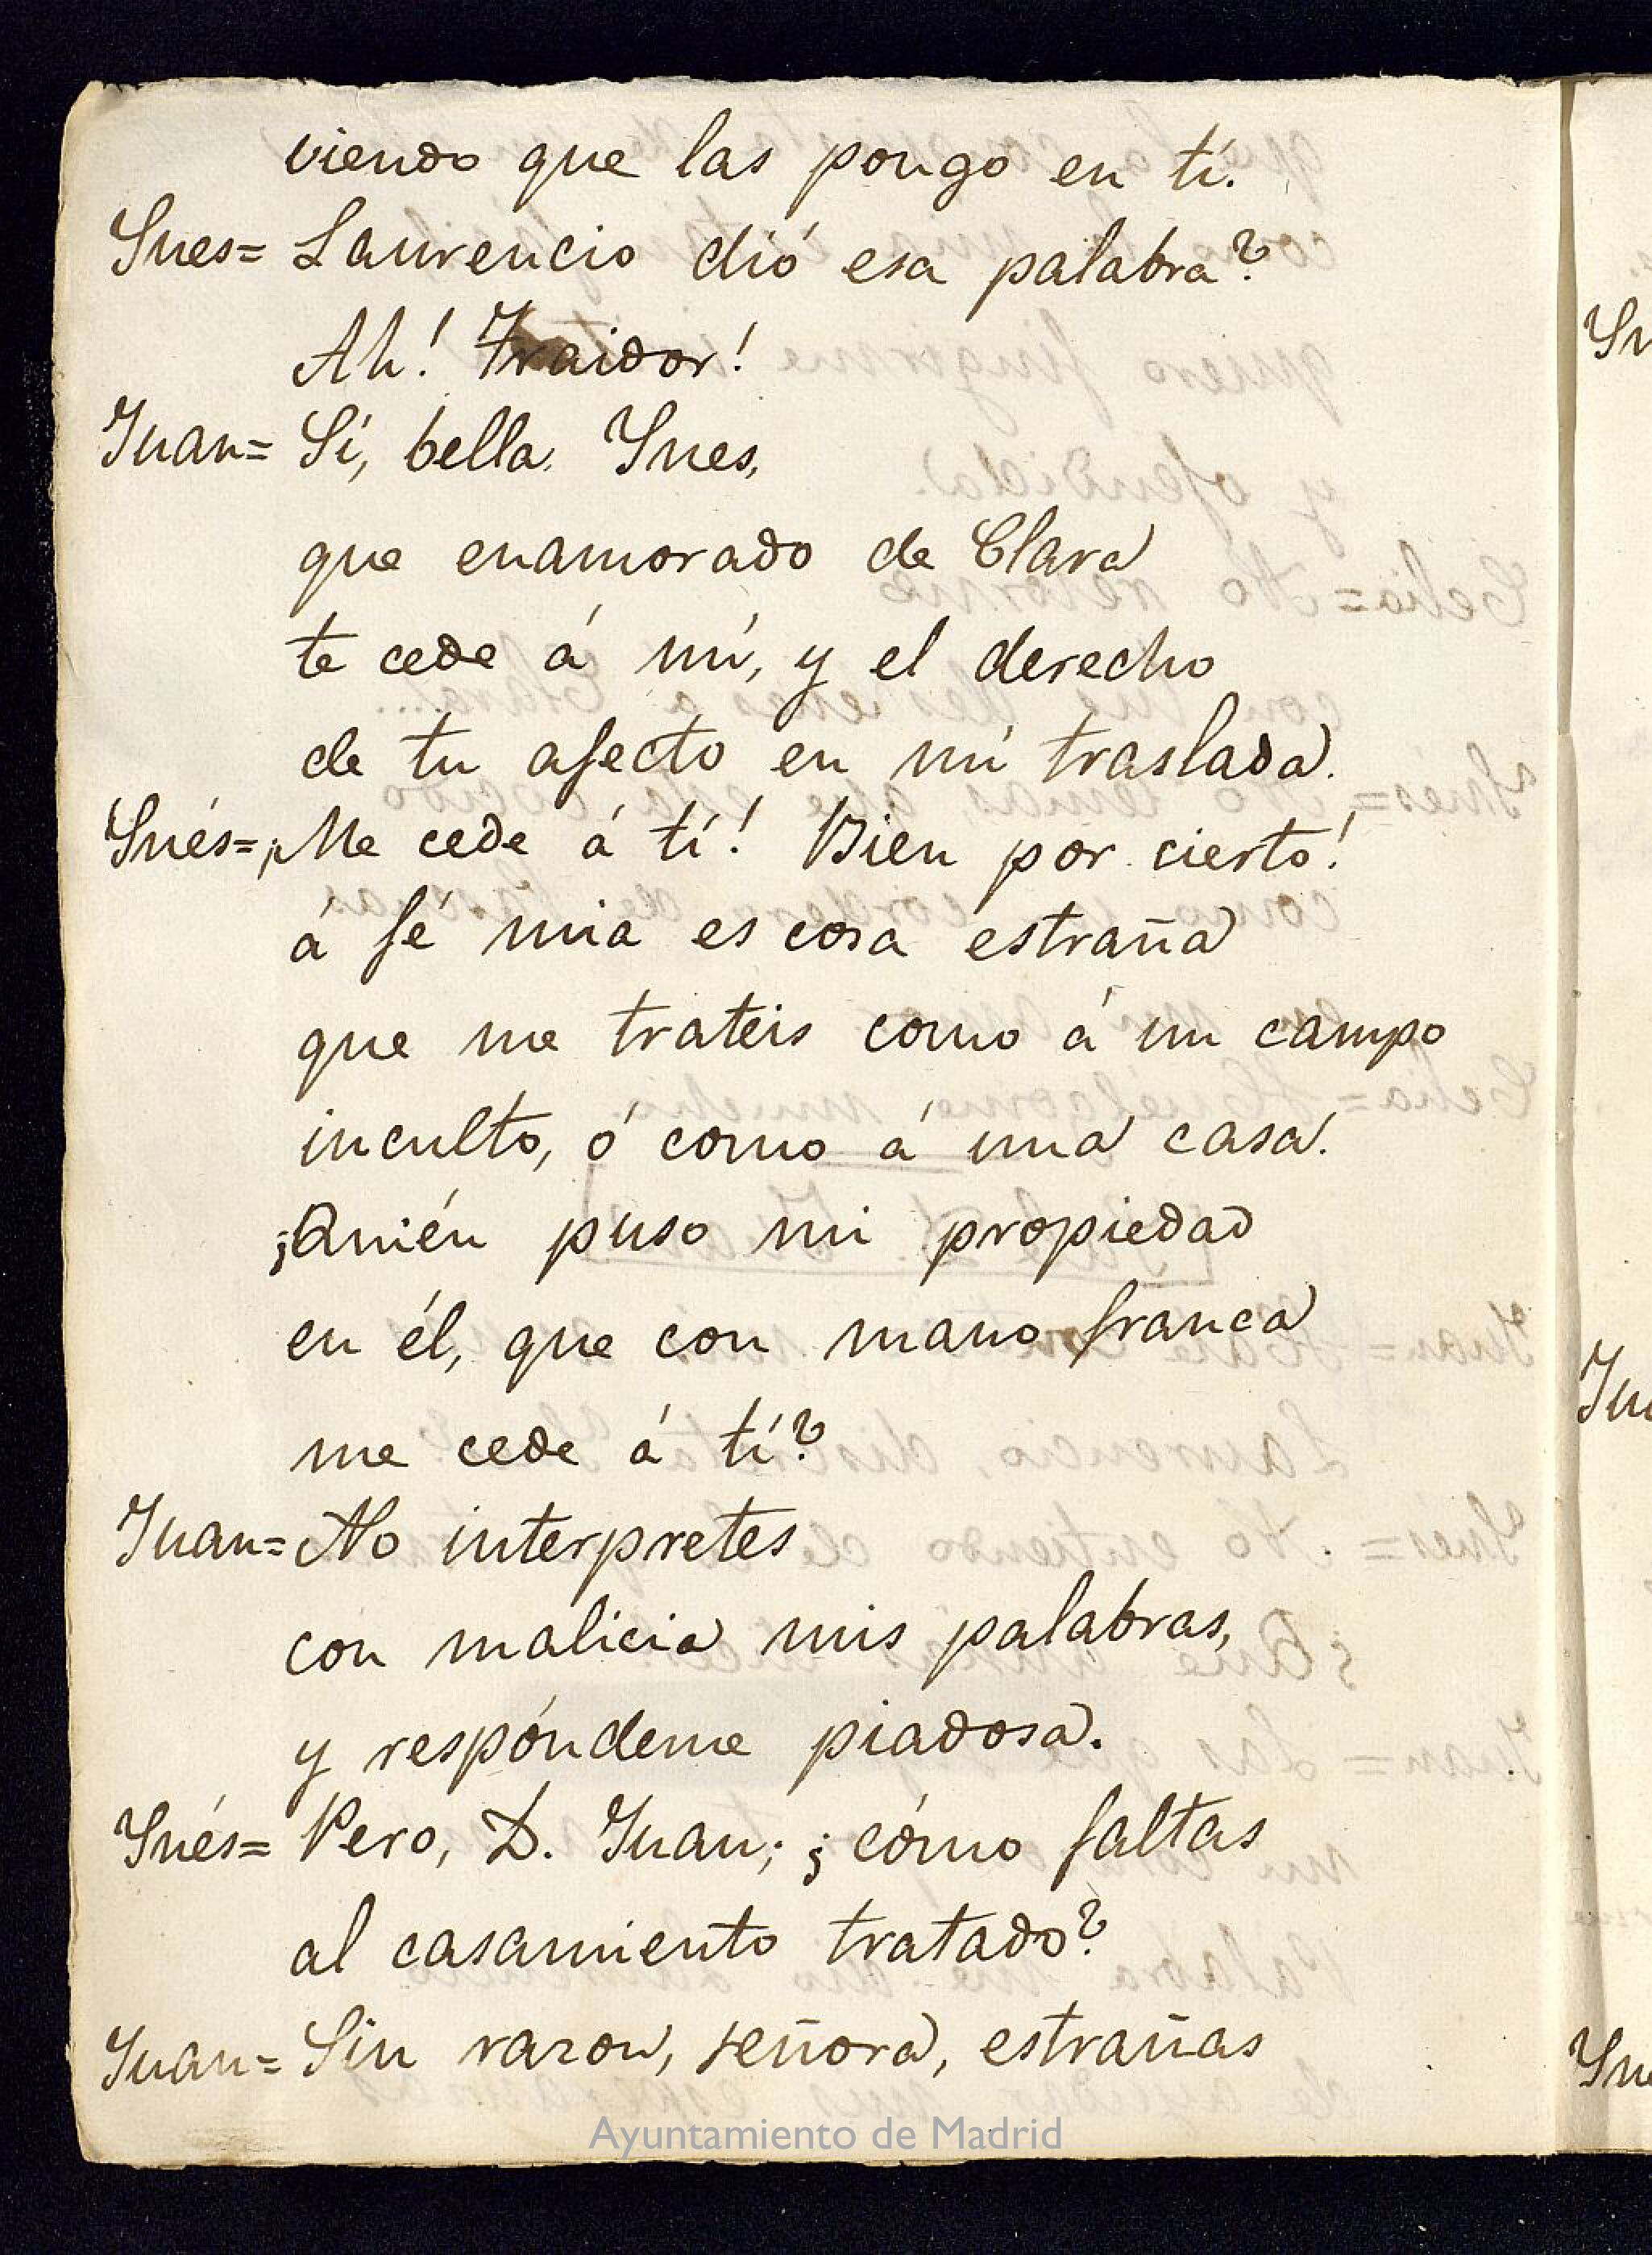 viendo que las pongo en tí.
Ines= Laurencio dió esa palabra?
Ah! Traidor!
Juan= Sí, bella Ines,
que enamorado de Clara
te cede á mí, y el derecho
de tu afecto en mí traslada.
Inés= ¡Me cede á tí! Bien por cierto!
á fé mia es cosa estraña
que me trateis como á un campo
inculto, ó como á una casa.
¿Quién puso mi propiedad
en él, que con mano franca
me cede á tí?
Juan= No interpretes
con malicia mis palabras,
y respóndeme piadosa.
Inés= Pero, D. Juan; ¿cómo faltas
al casamiento tratado?
Juan= Sin razon, señora, estrañas
Ayuntamiento de Madrid